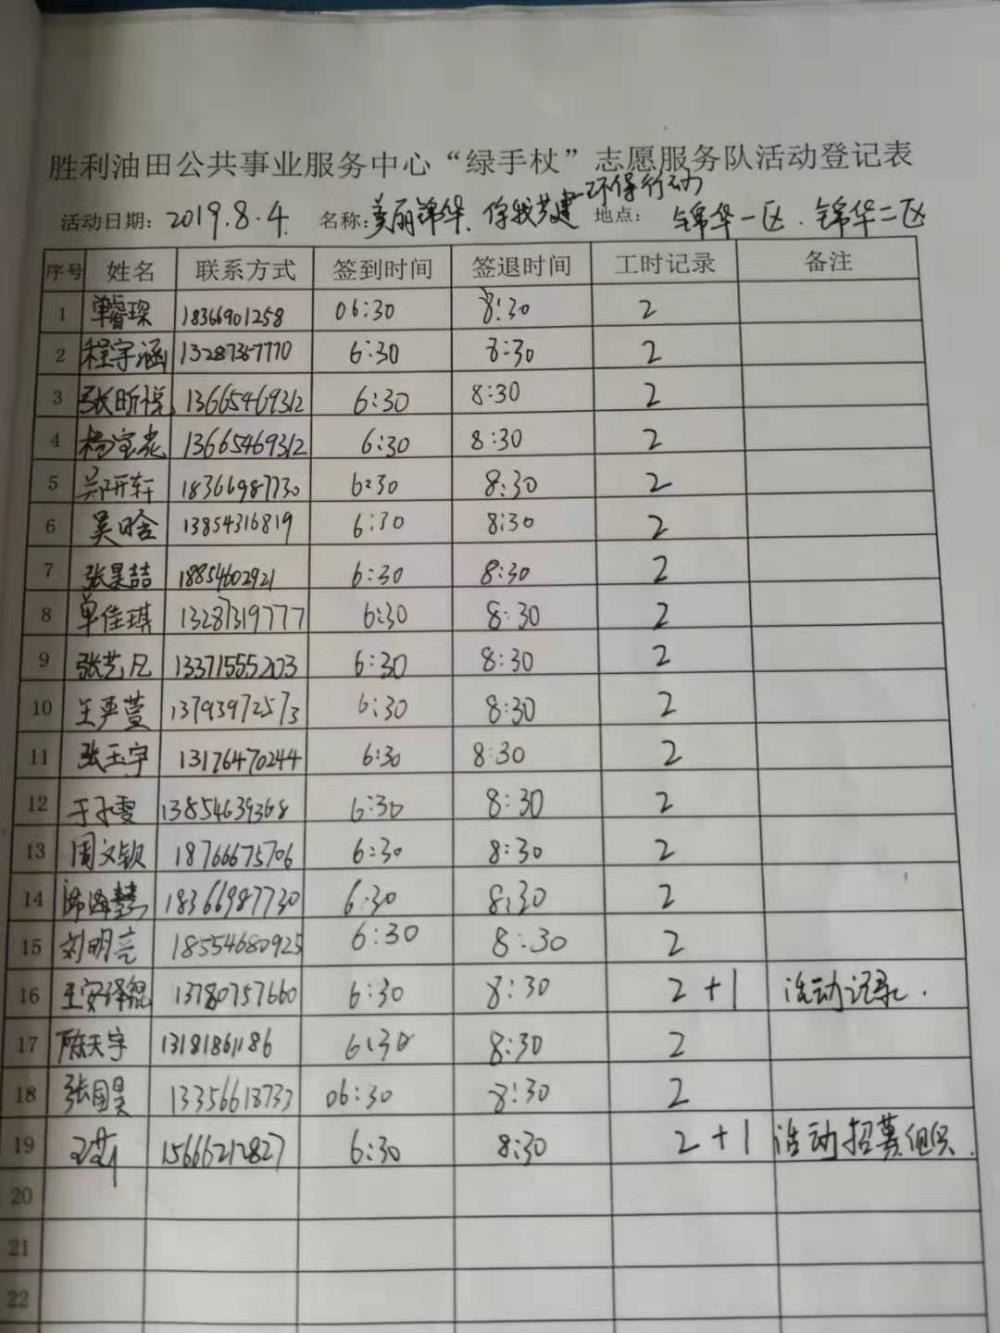 胜利油田公共事业服务中心“绿手杖”志愿服务队活动登记表
活动日期：2019.8.4 名称：美丽锦华、你我共建——环保行动 地点：锦华一区、锦华二区
序号 姓名 联系方式 签到时间 签退时间 工时记录 备注
1 单睿琛 18366901258 06:30 8:30 2
2 程宇涵 13287357770 6:30 8:30 2
3 张昕悦 13665469312 6:30 8:30 2
4 杨宝龙 13665469312 6:30 8:30 2
5 郑研轩 18366987730 6:30 8:30 2
6 吴晗 13854316819 6:30 8:30 2
7 张昊喆 18854602921 6:30 8:30 2
8 单佳琪 13287319777 6:30 8:30 2
9 张艺凡 13371555203 6:30 8:30 2
10 王严萱 13793972573 6:30 8:30 2
11 张玉宇 13176470244 6:30 8:30 2
12 于子雯 13854639368 6:30 8:30 2
13 周文钦 18766675706 6:30 8:30 2
14 18366987730 6:30 8:30 2
15 刘明亮 18554680925 6:30 8:30 2
16 王安泽锟 13780757660 6:30 8:30 2+1 活动记录.
17 陈天宇 13181861186 6:30 8:30 2
18 张国昊 13356613733 06:30 8:30 2
19 王莉 15666212827 6:30 8:30 2+1 活动招募组织.
20
21
22